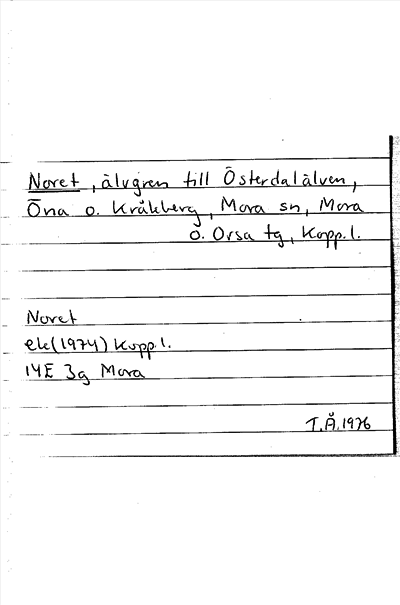 Noret, älvgren till Österdalälven,
Öna o. Kråkberg, Mora sn, Mora
o. Orsa tg, Kopp.l.
Noret
ek(1974) Kopp.l.
14E 3g Mora
T.Å.1976